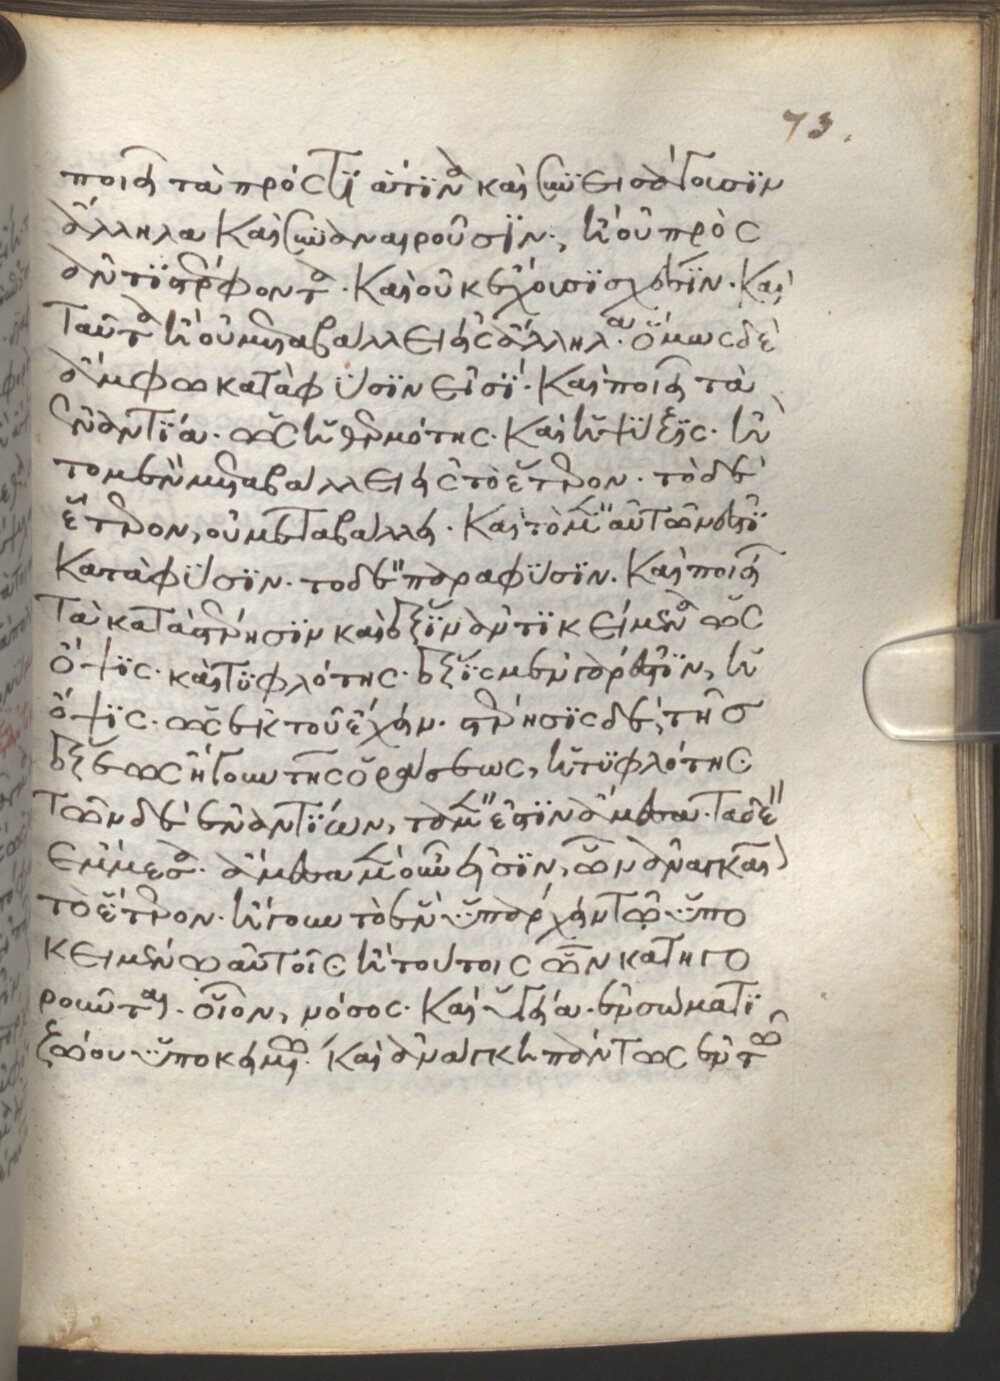 73.
ποιεῖ τὰ πρός τι ἅτινα καὶ συνεισάγουσιν
ἄλληλα καὶ συναναιροῦσιν. ἢ οὐ πρὸς
ἀντιστρέφοντα. καὶ οὐκ ἔχουσι σχέσιν. καὶ
ταῦτα ἢ οὐ μεταβάλλει εἰς ἄλληλα. ὅμως δὲ
ἄμφω κατὰ φύσιν εἰσί. καὶ ποιεῖ τὰ
ἐναντία. ὡς ἡ θερμότης. καὶ ἡ ψύξις. ἢ
τὸ μὲν μεταβάλλει εἰς τὸ ἕτερον. τὸ δὲ
ἕτερον, οὐ μεταβάλλει. καὶ τὸ μὲν αὐτῶν ἐστὶ
κατὰ φύσιν. τὸ δὲ παρὰ φύσιν. καὶ ποιεῖ
τὰ κατὰ στέρησιν καὶ ἕξιν ἀντικείμενα ὡς
ὄψις. καὶ τυφλότης. ἕξις μὲν γάρ ἐστιν, ἡ
ὄψις. ὡς ἐκ τοῦ ἔχειν. στέρησις δὲ, τῆς
ἕξεως ἤγουν τῆς ὁράσεως, ἡ τυφλότης
τῶν δὲ ἐναντίων, τὰ μὲν ἐστὶν ἄμεσα. τὰ δὲ
ἔμμεσα. ἄμεσα μὲν οὖν εἰσὶν, ὧν ἀναγκαῖ
τὸ ἕτερον. ἤγουν τὸ ἓν ὑπάρχειν τῷ ὑπο
κειμένῳ αὐτοῖς ἢ τούτοις ὧν κατηγο
ροῦνται. οἷον, νόσος. καὶ ὑγεία. ἐν σώματι
ζῴου ὑποκειμένῳ. καὶ ἀνάγκη πάντως ἐν τῷ